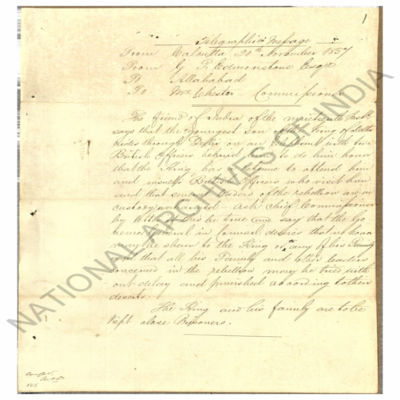 1
Telegraphic Message
From Calcutta 20th November 1857
From G. F. Edmonstone Esqre
To Allahabad
To Mr. Chester Commissioner
The friend of India of the nineteenth
says that the Youngest Son of the King of Delhi
rides through Delhi on an Elephant with five
British Officers behind him to do him honor
that the King has to attend him
and insults British Officers who visit him
and that some leaders of the rebellion are in
custody Ask Chief Commissioner
by if this be true and say that the Go
General in Council desires that no honor
may be shewn to the King or any of his Family
and that all his Family and other leaders
concerned in the rebellion may be tried with
out delay and punished according to their
deserts.
The King and his family are to be
kept close Prisoners.
NATIONAL ARCHIVES OF INDIA